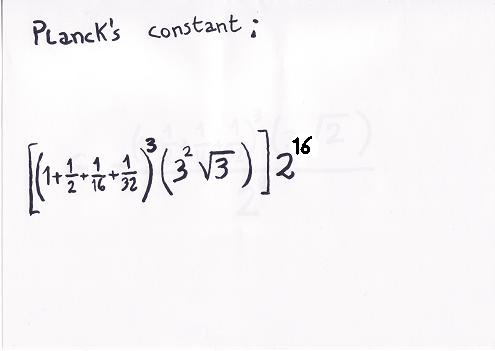 Planck's constant:
[(1+1/2+1/16+1/32)³(3²√3)]2¹⁶